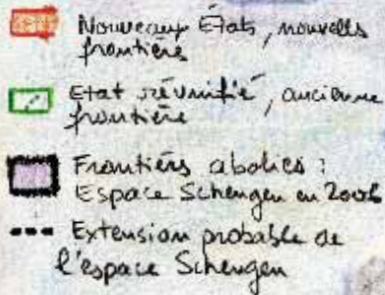 Nouveaux États, nouvells
frontières
Etat réunifié, ancienne
frontière
Frontièrs abolies :
Espace Schengen en 2006
Extension probable de
l'espace Schengen